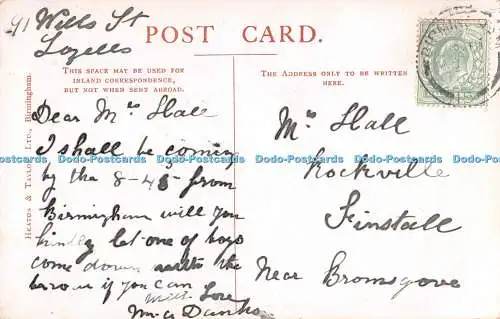 91 Wills St
Lozells
POST CARD.
THIS SPACE MAY BE USED FOR
INLAND CORRESPONDENCE,
BUT NOT WHEN SENT ABROAD.
THE ADDRESS ONLY TO BE WRITTEN
HERE.
HEATON & TAYLOR LTD., Birmingham.
Dear Mrs Hall
I shall be coming
by the 8-45 from
Birmingham will you
kindly let one of boys
come down with the
barrow if you can
with Love
Mrs Danks
Mrs Hall
Rockville
Finstall
Near Bromsgove
Dodo-Postcards Dodo-Postcards Dodo-Postcards Dodo-Postcards Dodo-Postcards